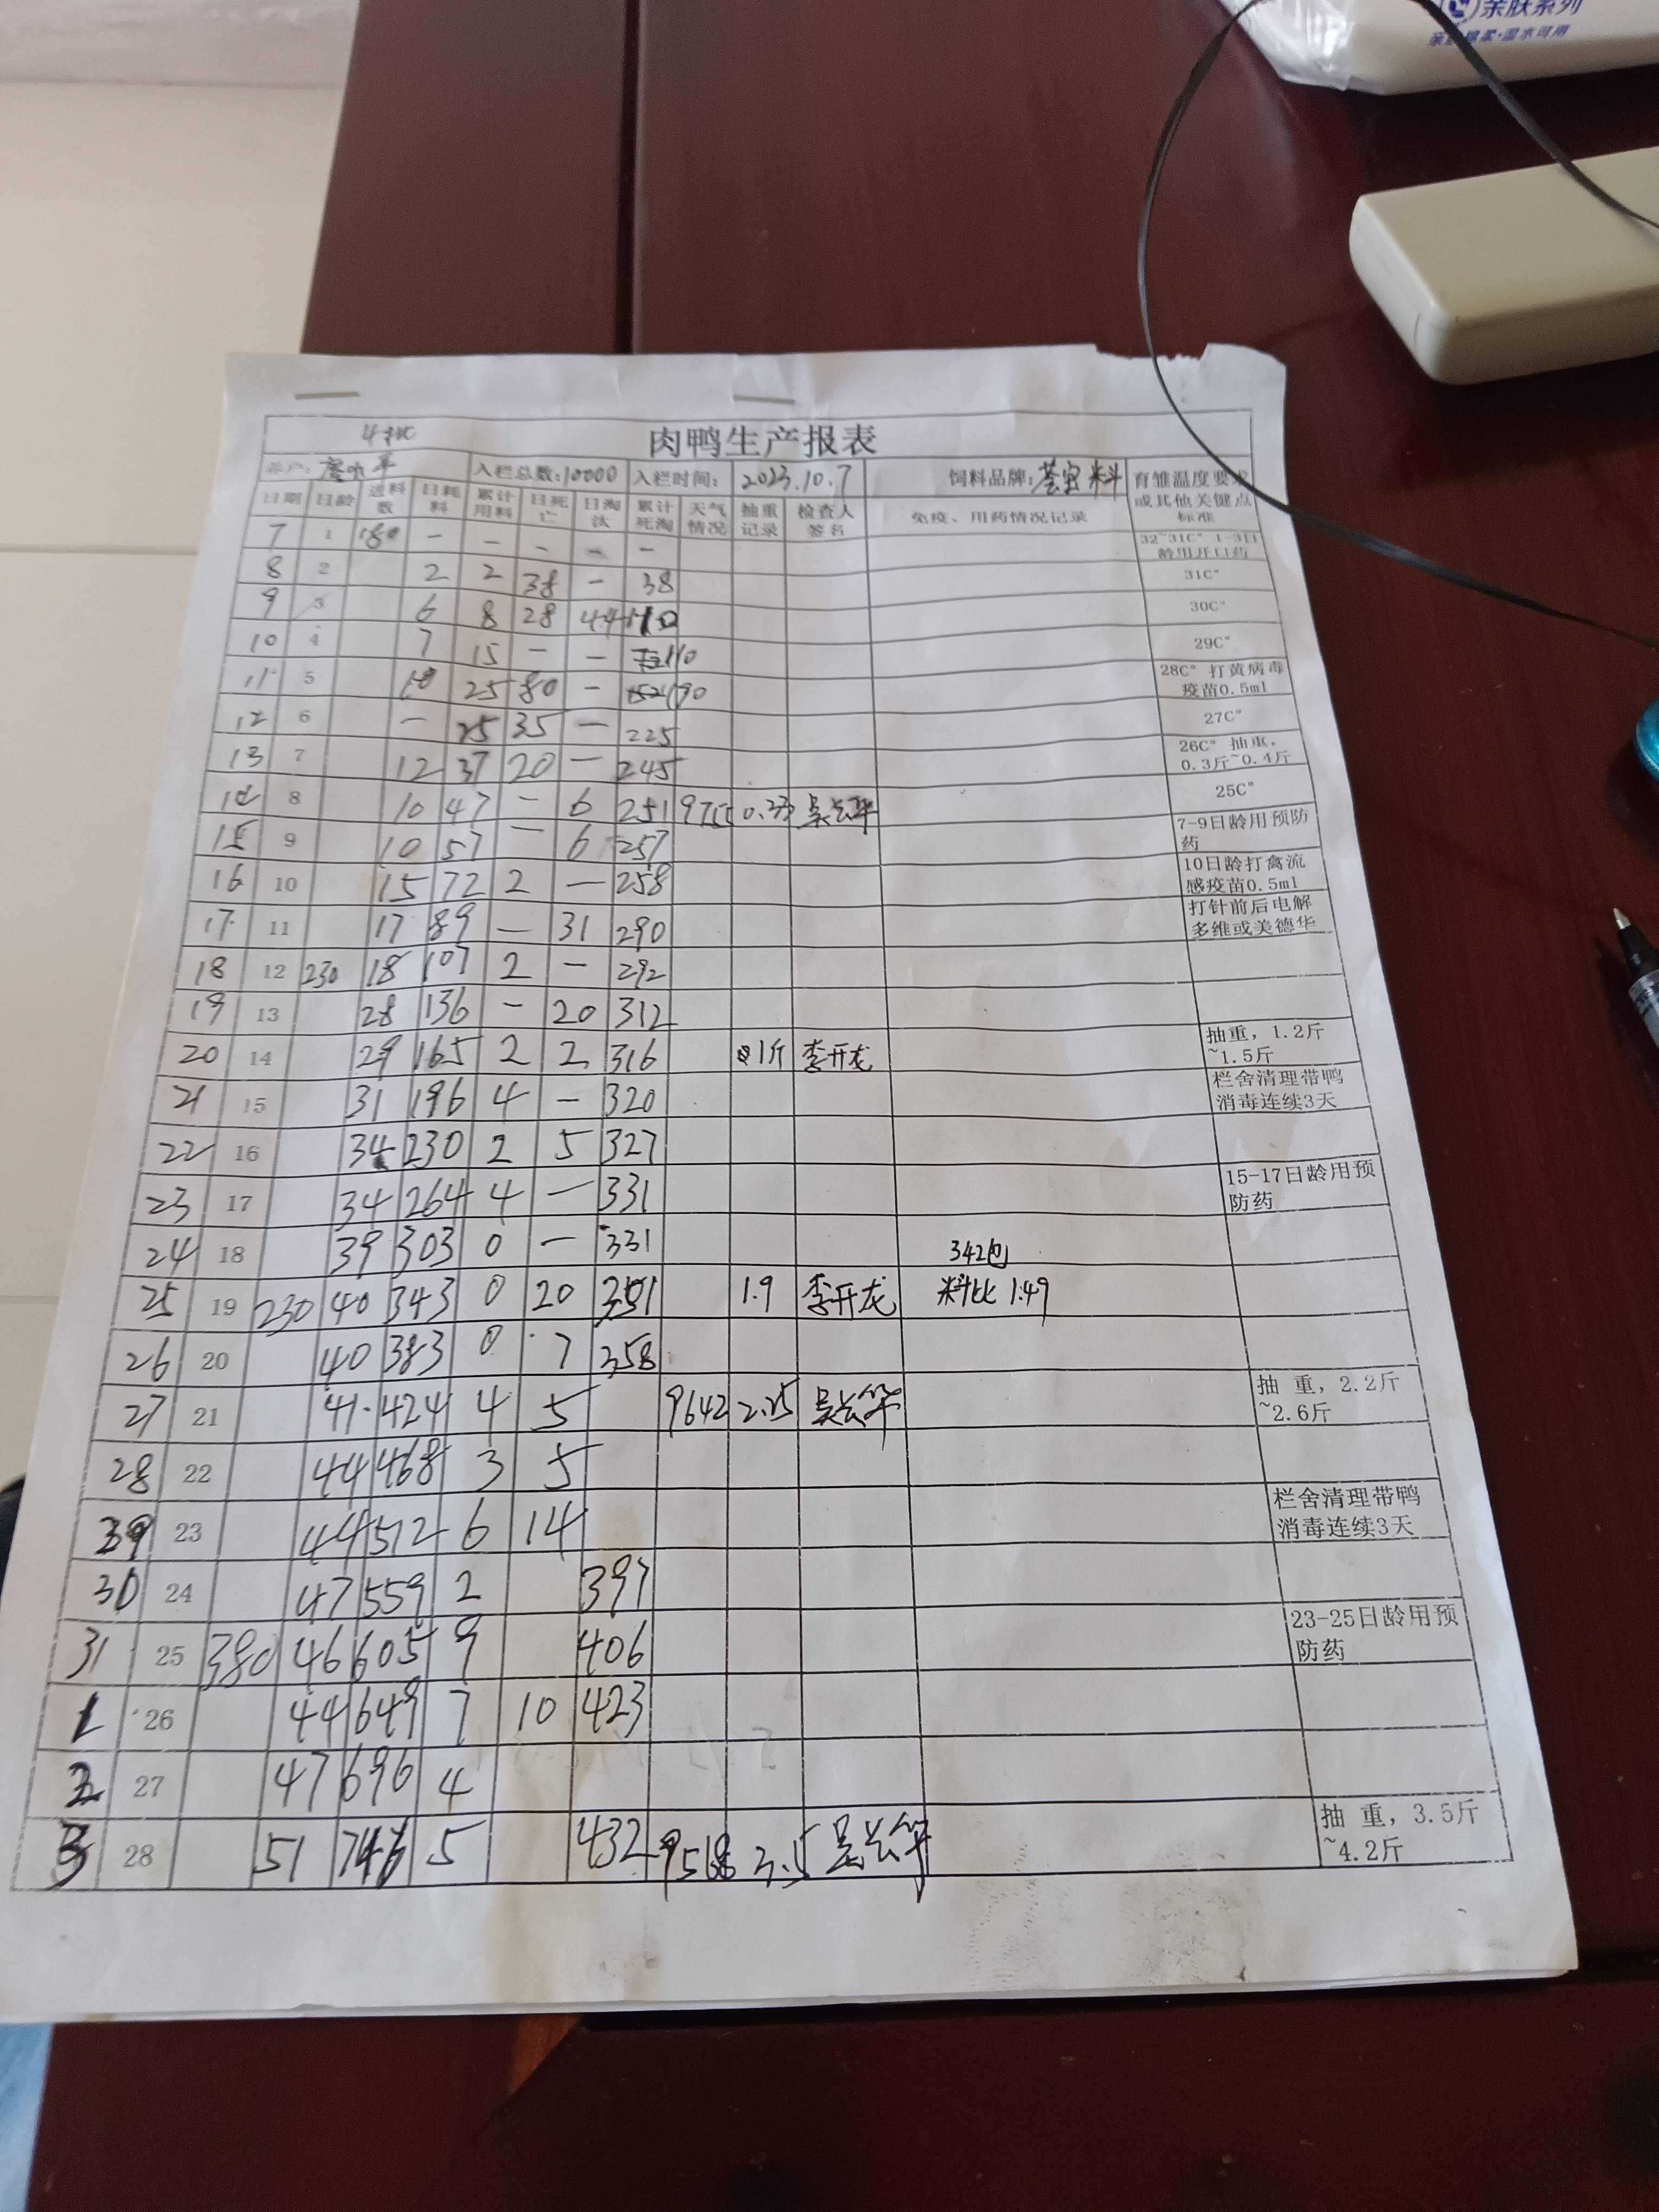 亲肤系列
亲肤绵柔·温水可用
4批
肉鸭生产报表
养户: 入栏总数:10000 入栏时间: 2023.10.7 饲料品牌: 料 育雏温度要求或其他关键点标准
日期 日龄 进料数 日耗料 累计用料 日死亡 日淘汰 累计死淘 天气情况 抽重记录 检查人签名 免疫、用药情况记录
7 1 180 - - - - - 32~31C° 1-3日龄用开口药
8 2 2 2 38 - 38 31C°
9 3 6 8 28 44 110 30C°
10 4 7 15 - - 110 29C°
11 5 10 25 80 - 190 28C° 打黄病毒疫苗0.5ml
12 6 - 25 35 - 225 27C°
13 7 12 37 20 - 245 26C° 抽重,0.3斤~0.4斤
14 8 10 47 - 6 251 9755 0.33 吴长华 25C°
15 9 10 57 - 6 257 7-9日龄用预防药
16 10 15 72 2 - 258 10日龄打禽流感疫苗0.5ml
17 11 17 89 - 31 290 打针前后电解多维或美德华
18 12 230 18 107 2 - 292
19 13 28 136 - 20 312
20 14 29 165 2 2 316 1斤 李开龙 抽重,1.2斤~1.5斤
21 15 31 196 4 - 320 栏舍清理带鸭消毒连续3天
22 16 34 230 2 5 327
23 17 34 264 4 - 331 15-17日龄用预防药
24 18 39 303 0 - 331 342包
25 19 230 40 343 0 20 351 1.9 李开龙 料比 1.49
26 20 40 383 0 7 358
27 21 41 424 4 5 9642 2.25 吴长华 抽 重,2.2斤~2.6斤
28 22 44 468 3 5
29 23 44 512 6 14 栏舍清理带鸭消毒连续3天
30 24 47 559 2 397
31 25 380 46 605 9 406 23-25日龄用预防药
1 26 44 649 7 10 423
2 27 47 696 4
3 28 51 746 5 432 9568 3.5 吴长华 抽 重,3.5斤~4.2斤